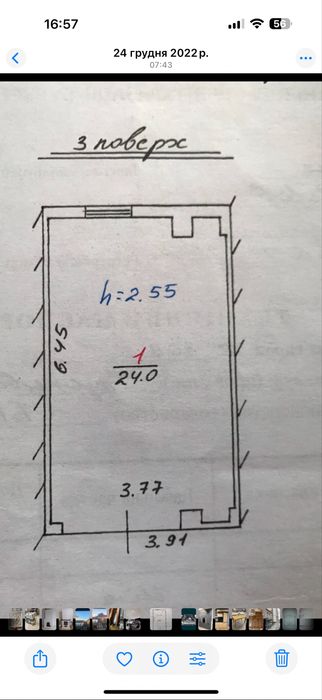 16:57
56
24 грудня 2022 р.
07:43
3 поверх
h=2.55
6.45
1
24.0
3.77
3.91